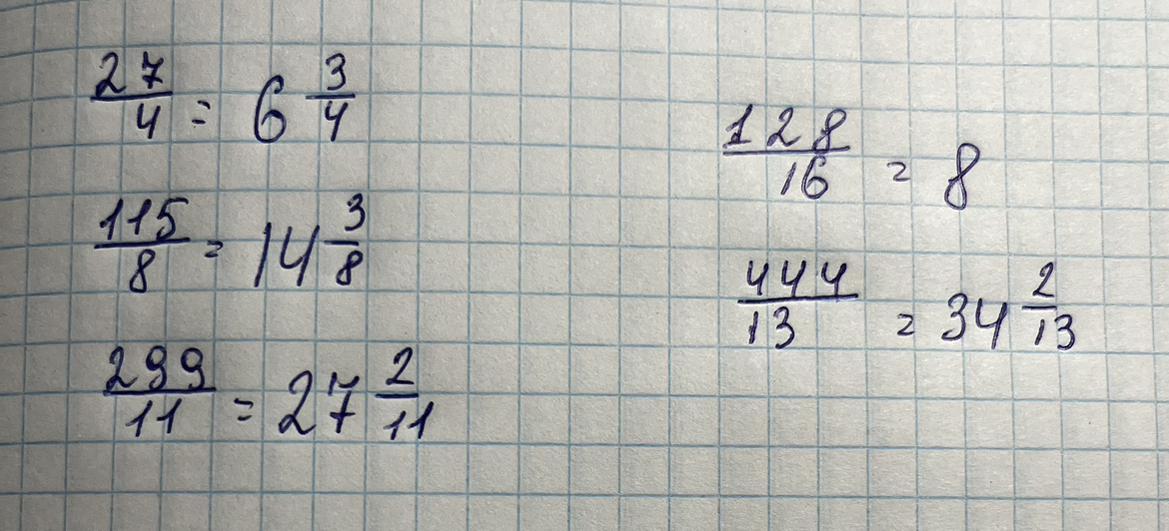 27/4 = 6 3/4
115/8 = 14 3/8
299/11 = 27 2/11
128/16 = 8
444/13 = 34 2/13